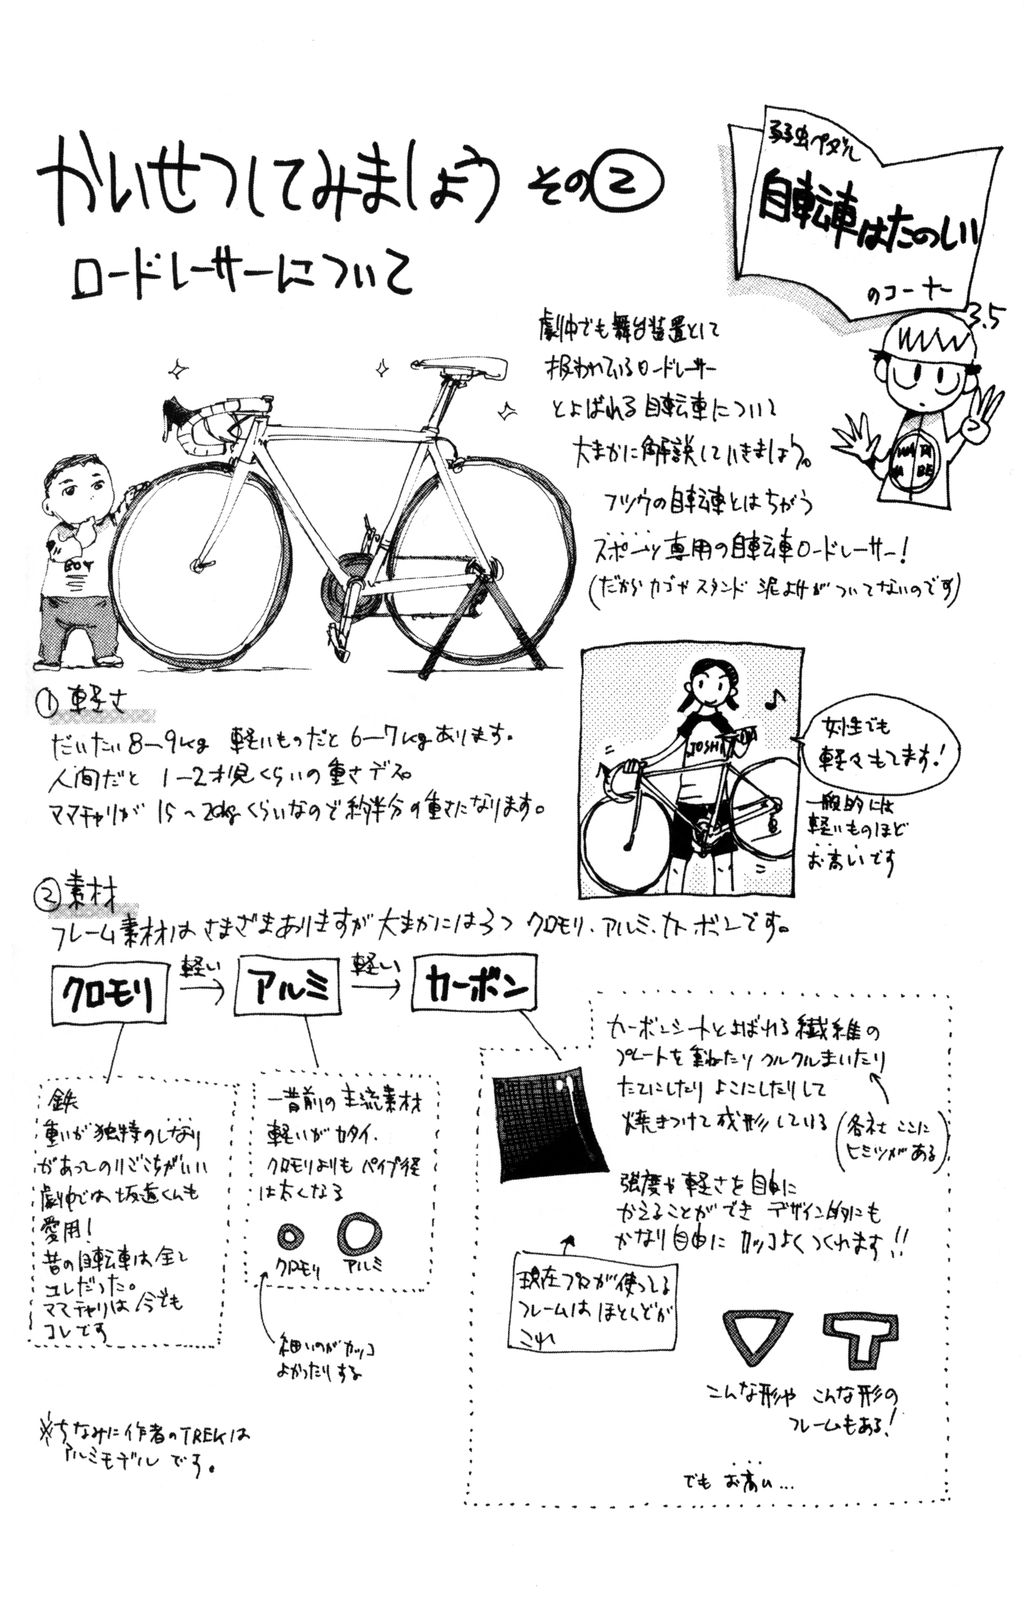 かいせつしてみましょう その②
ロードレーサーについて
弱虫ペダル
自転車はたのしい
のコーナー
3.5
劇中でも舞台装置として
扱われているロードレーサー
とよばれる自転車について
大まかに解説していきましょう。
フツウの自転車とはちがう
スポーツ専用の自転車ロードレーサー!
(だからカゴやスタンド 泥よけがついてないのです)
WA TA
NA BE
BOY
①軽さ
だいたい8〜9kg 軽いものだと6〜7kgあります。
人間だと 1〜2才児くらいの重さデス。
ママチャリが 15〜20kgくらいなので約半分の重さになります。
TOSHI
♪
女性でも
軽々もてます!
一般的には
軽いものほど
お高いです
②素材
フレーム素材はさまざまありますが大まかには3つ クロモリ、アルミ、カーボンです。
クロモリ
軽い
→
アルミ
軽い
→
カーボン
鉄
重いが独特のしなり
があってのりごこちがいい
劇中では坂道くんも
愛用!
昔の自転車は全て
コレだった。
ママチャリは今でも
コレです
一昔前の主流素材
軽いがカタイ.
クロモリよりもパイプ径
は太くなる
クロモリ アルミ
細いのがカッコ
よかったりする
カーボンシートとよばれる繊維の
プレートを重ねたりクルクルまいたり
たてにしたりよこにしたりして
焼きつけて成形している
(各社ここに
ヒミツがある)
強度や軽さを自由に
かえることができ デザイン的にも
かなり自由に カッコよくつくれます!!
現在プロが使ってる
フレームはほとんどが
これ
こんな形や こんな形の
フレームもある!
でも お高い...
※ちなみに作者のTREKは
アルミモデルです。